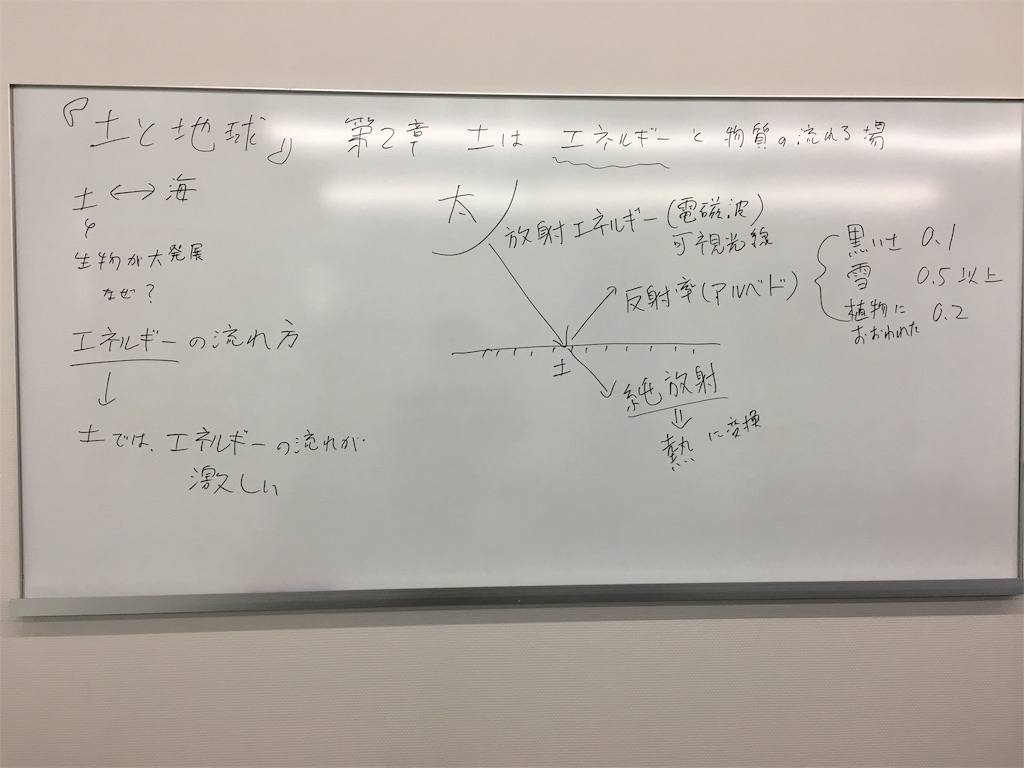 『土と地球』 第2章 土は エネルギーと物質の流れる場
土 ↔ 海
生物が大発展
なぜ?
エネルギーの流れ方
↓
土では、エネルギーの流れが
激しい
太
放射エネルギー(電磁波)
可視光線
反射率(アルベド)
黒い土 0.1
雪 0.5以上
植物に
おおわれた 0.2
土
純放射
⇓
熱に変換